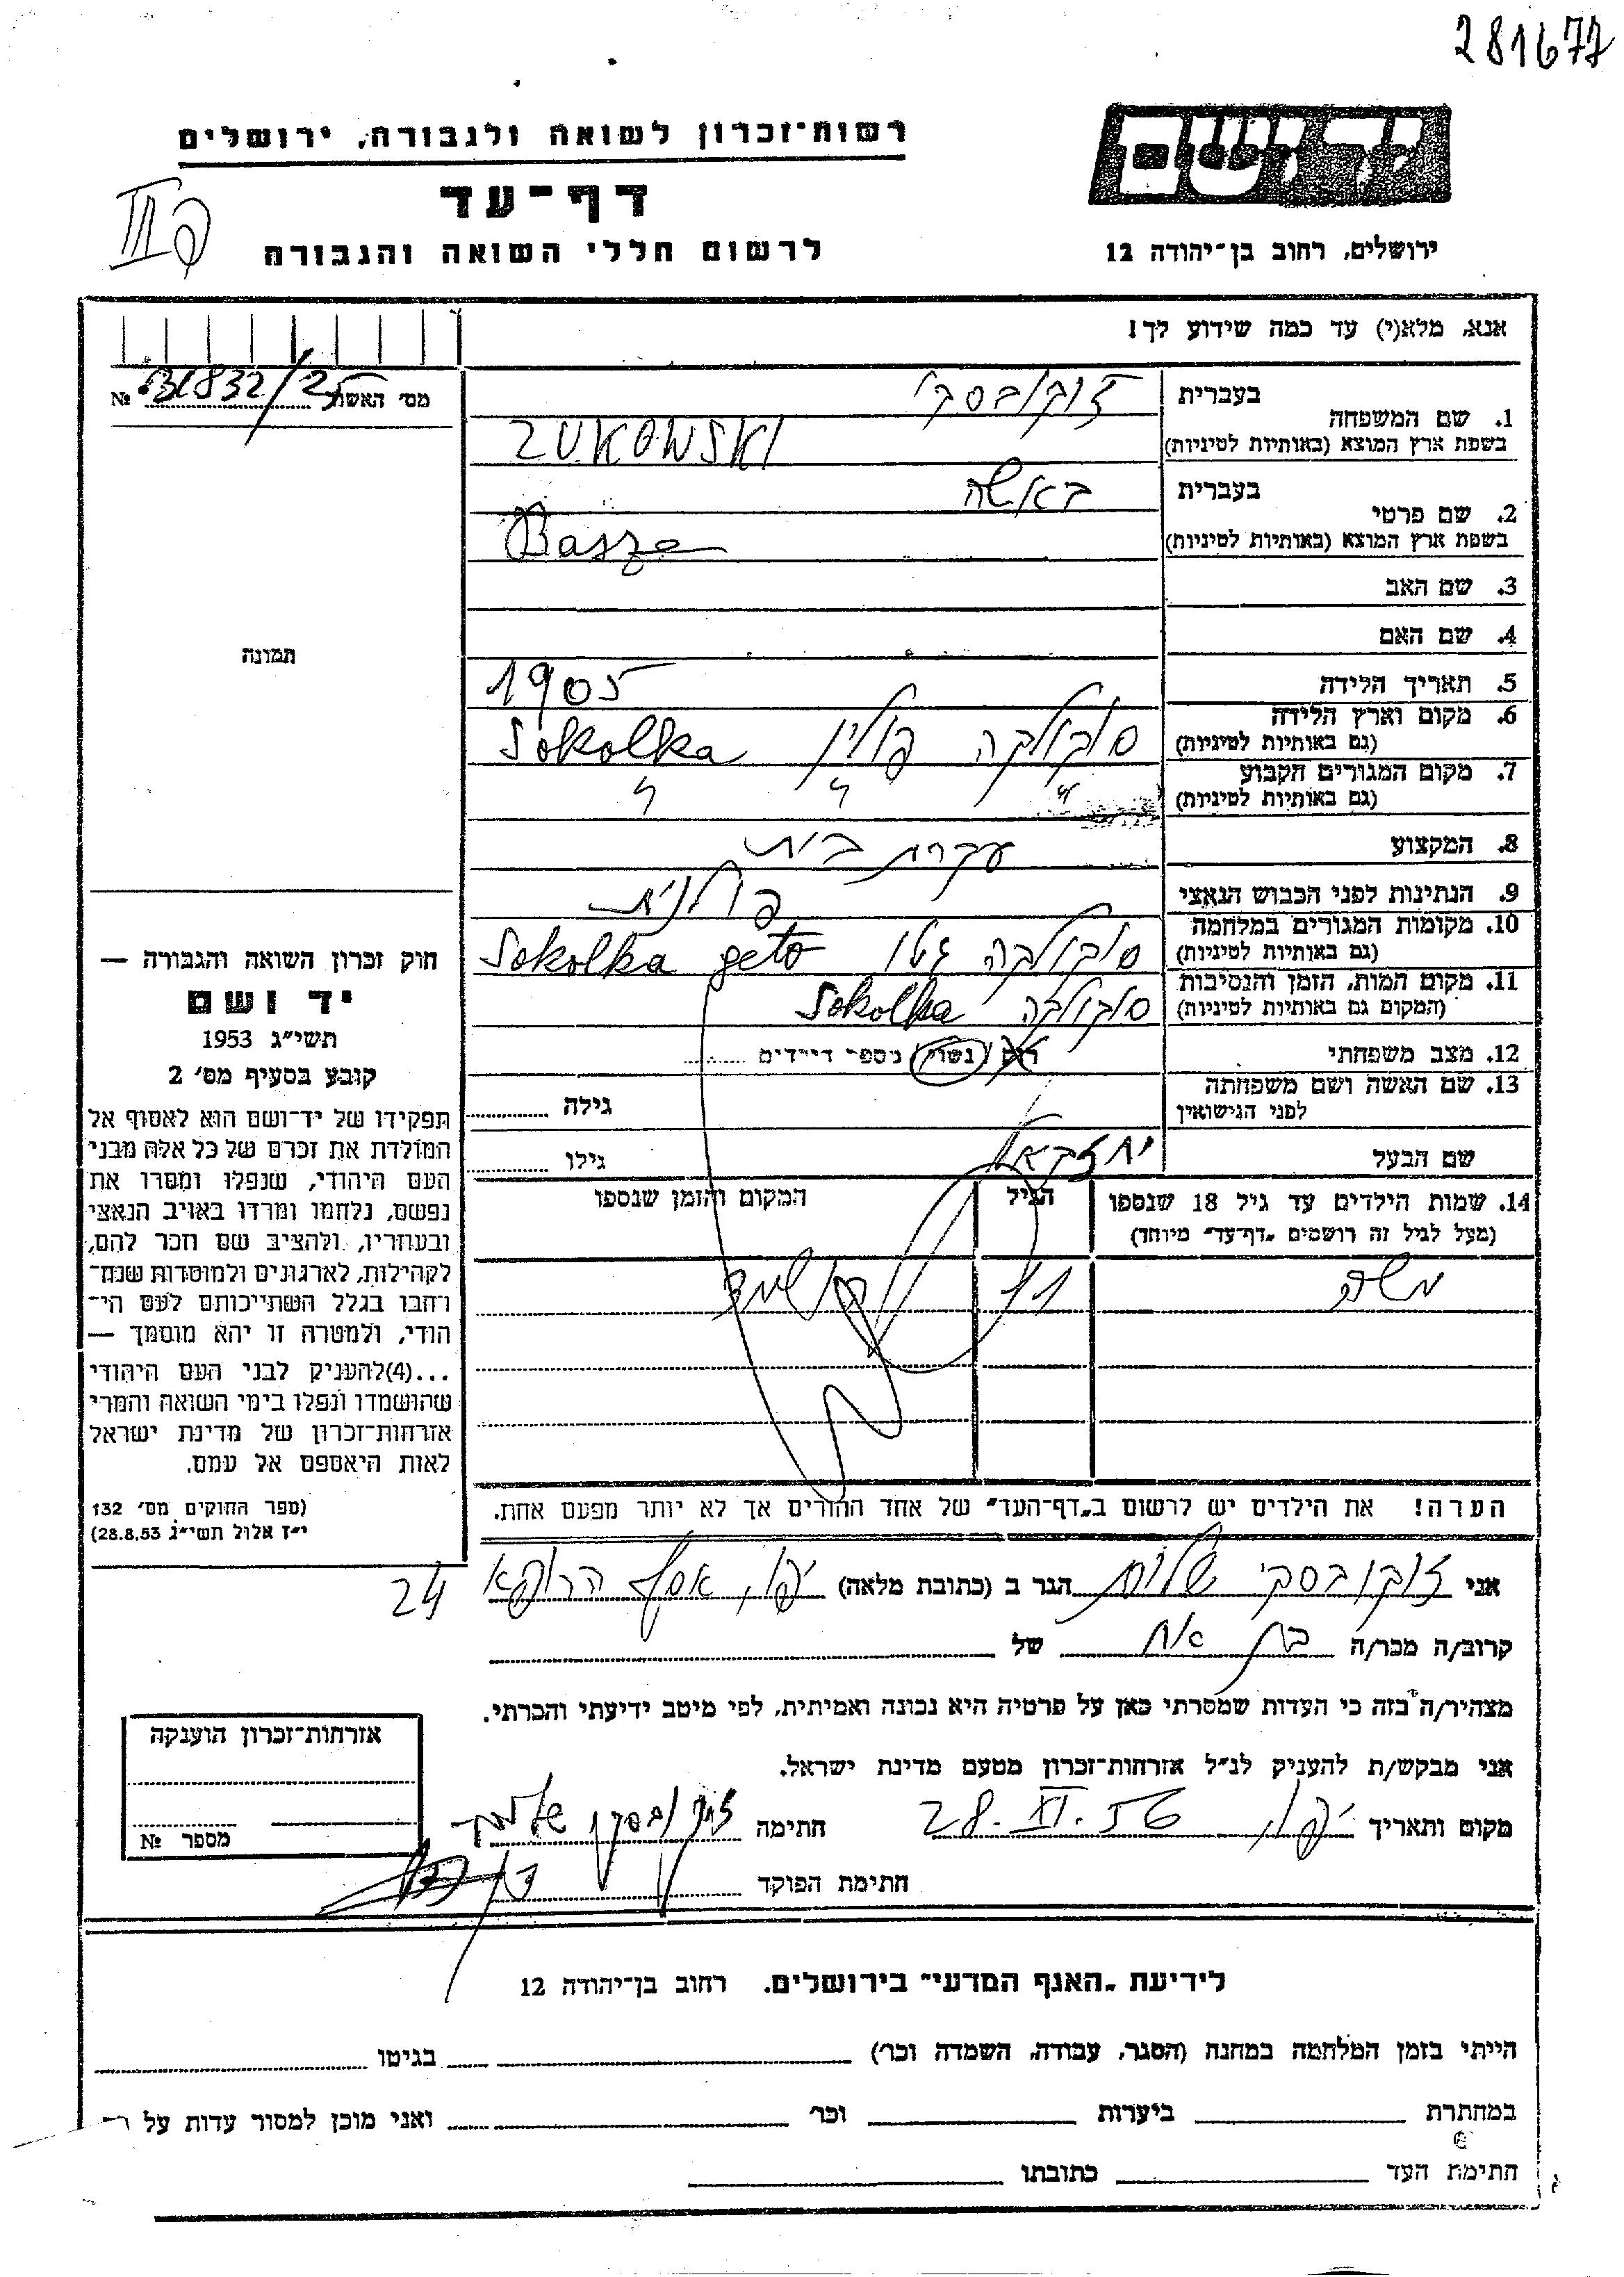 281677
רשות־זכרון לשואה ולגבורה, ירושלים
יד ושם
דף־עד
לרשום חללי השואה והגבורה
ירושלים, רחוב בן־יהודה 12
אנא, מלא(י) עד כמה שידוע לך!
מס׳ האשה 31832/25 №
1. שם המשפחה
בעברית זוקובסקי
בשפת ארץ המוצא (באותיות לטיניות) ZUKOWSKI
2. שם פרטי
בעברית באשה
בשפת ארץ המוצא (באותיות לטיניות) Basze
3. שם האב
4. שם האם
תמונה
5. תאריך הלידה 1905
6. מקום וארץ הלידה
(גם באותיות לטיניות) סוקולקה פולין Sokolka
7. מקום המגורים הקבוע
(גם באותיות לטיניות) " " "
8. המקצוע עקרת בית
9. הנתינות לפני הכבוש הנאצי פולנית
10. מקומות המגורים במלחמה
(גם באותיות לטיניות) סוקולקה גטו Sokolka geto
11. מקום המות, הזמן והנסיבות
(המקום גם באותיות לטיניות) סוקולקה Sokolka
12. מצב משפחתי רוק / נשוי / מספר הילדים
13. שם האשה ושם משפחתה
לפני הנישואין גילה
שם הבעל יחזקאל גילו
14. שמות הילדים עד גיל 18 שנספו הגיל המקום והזמן שנספו
(מעל לגיל זה רושמים „דף־עד״ מיוחד)
משה 11
הערה! את הילדים יש לרשום ב„דף־העד״ של אחד ההורים אך לא יותר מפעם אחת.
חוק זכרון השואה והגבורה —
יד ושם
תשי״ג 1953
קובע בסעיף מס׳ 2
תפקידו של יד־ושם הוא לאסוף אל
המולדת את זכרם של כל אלה מבני
העם היהודי, שנפלו ומסרו את
נפשם, נלחמו ומרדו באויב הנאצי
ובעוזריו, ולהציב שם וזכר להם,
לקהילות, לארגונים ולמוסדות שנח־
רחבו בגלל השתייכותם לעם הי־
הודי, ולמטרה זו יהא מוסמך —
...(4)להעניק לבני העם היהודי
שהושמדו ונפלו בימי השואה והמרי
אזרחות־זכרון של מדינת ישראל
לאות היאספם אל עמם.
(ספר החוקים מס׳ 132
י״ז אלול תשי״ג 28.8.53)
אני זוקובסקי הגר ב (כתובת מלאה) יפו, אסף הרופא 24
קרוב/ה מכר/ה בת אח של
מצהיר/ה בזה כי העדות שמסרתי כאן על פרטיה היא נכונה ואמיתית, לפי מיטב ידיעתי והכרתי.
אני מבקש/ת להעניק לנ״ל אזרחות־זכרון מטעם מדינת ישראל.
מקום ותאריך יפו, 28.XI.56 חתימה זוקובסקי
חתימת הפוקד
אזרחות־זכרון הוענקה
מספר №
לידיעת „האגף המדעי״ בירושלים. רחוב בן־יהודה 12
הייתי בזמן המלחמה במחנה (הסגר, עבודה, השמדה וכר׳) בגיטו
במחתרת ביערות וכר׳ ואני מוכן למסור עדות על
חתימת העד כתובתו